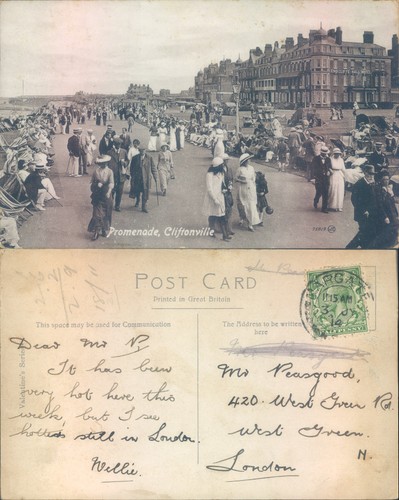 Promenade, Cliftonville
POST CARD
Printed in Great Britain
This space may be used for Communication
The Address to be written here
Valentine's Series
MARGATE
11.15 AM
3 JY
14
Dear Mr P,
It has been
very hot here this
week, but I see
hotter still in London.
Willie.
Mr Peasgood,
420. West Green Rd.
West Green.
N.
London